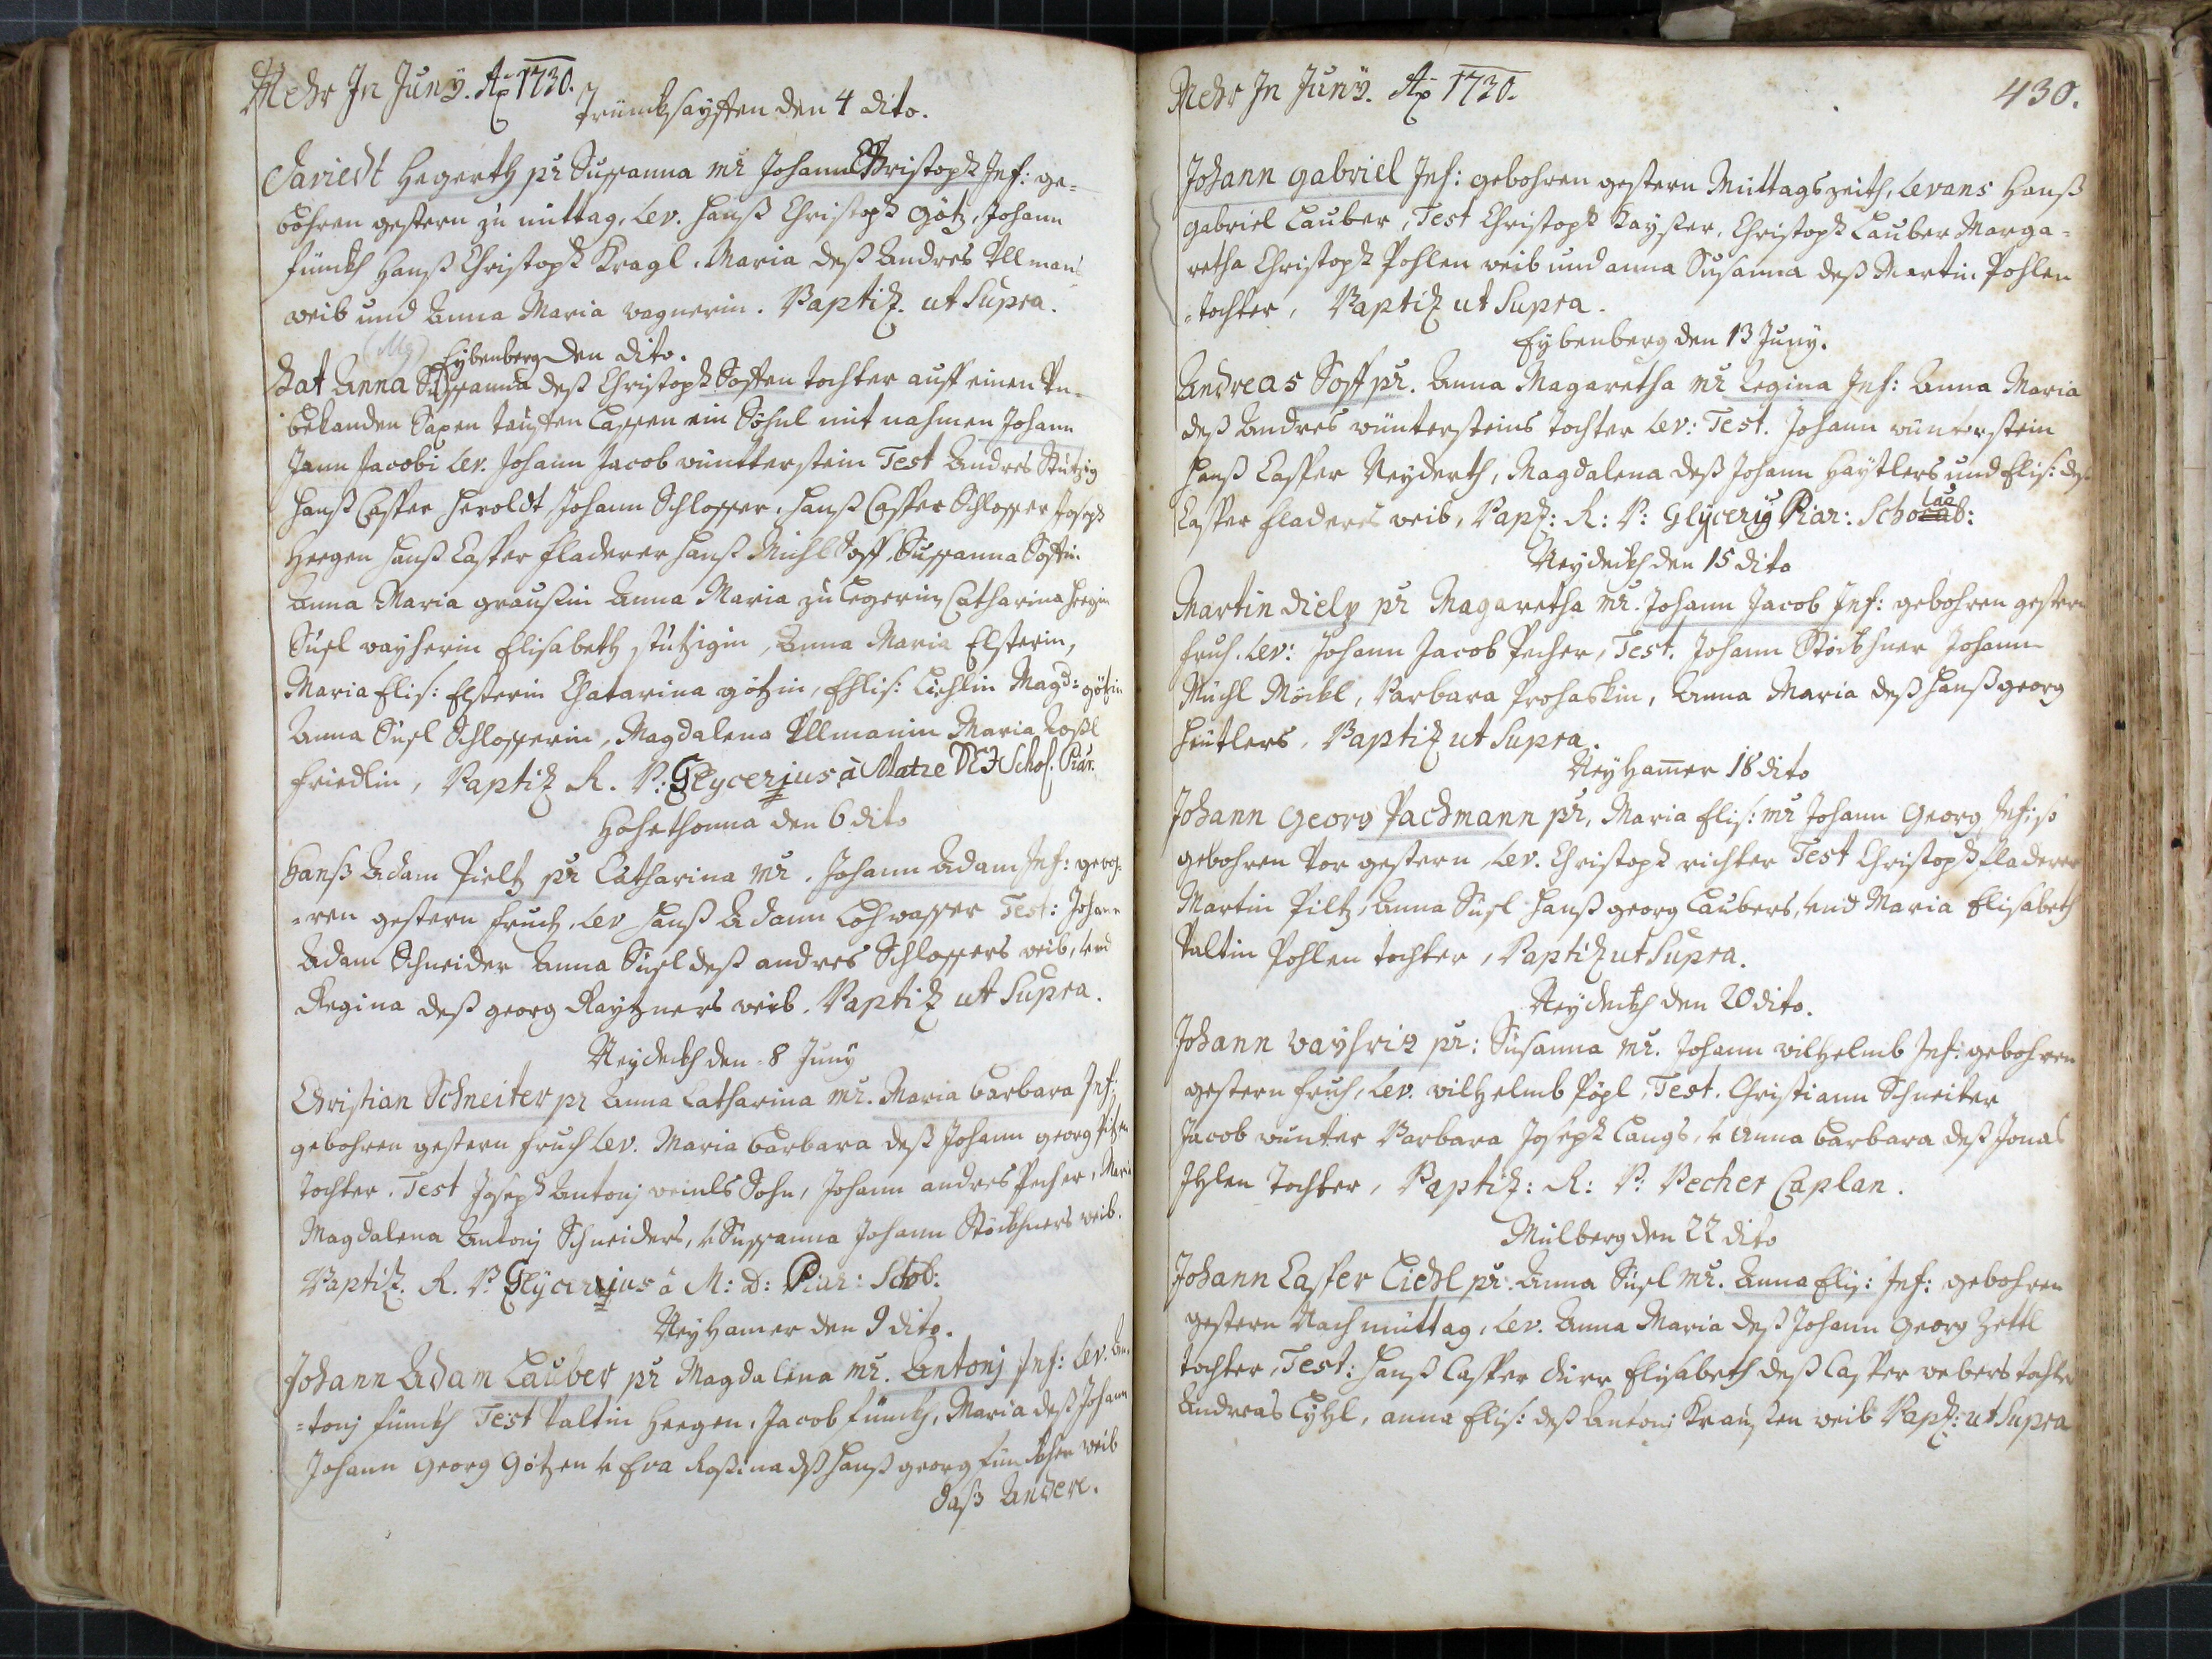 Mehr In Juny. Ao 1730.
Trünckhsayffen den 4 dito.
Daviedt Hegerth pr Sussanna mr Johann Christoph Inf: ge=
bohren gestern zu mittag, Lev. Hanß Christoph Götz, Johann
fünckh Hanß Christoph Kragl, Maria deß Andres Ullmans
weib und Anna Maria wagnerin. Baptiz. ut Supra.
Eybenberg den dito.
Hat Anna Sussanna deß Christoph Soffen tochter auff einen Un-
bekanden Saxen tauffen Lassen ein Söhnl mit nahmen Johann
Jacobi Lev. Johann Jacob wüntterstein Test Andres Stützig
Hanß Casper Heroldt Johann Schlosser, Hanß Casper Schlosser Joseph
Heegen Hanß Casper fladerer Hanß Michl Soff, Sussanna Soffin
Anna Maria graußin Anna Maria Catharina Heegin
Susl wayherin Elisabeth stützigin, Anna Maria Elsterin,
Maria Elis: Elsterin Chatarina götzin, Ehlis: Liehlin Magd: götzin
Anna Susl Schlosserin, Magdalena Ullmanin Maria Rosl
friedlin, Baptiz R. P: Glycerius à Matre DEI Schol. Piar.
Hohethonna den 6 dito
Hanß Adam Pieltz pr Catharina mr. Johann Adam Inf: geboh=
=ren gestern fruh, Lev Hanß Adam Lohwasser Test: Johann
Adam Schneider Anna Susl deß andres Schlossers weib, und
Regina deß georg Raytzners weib. Baptiz ut Supra.
Neydeckh den 8 Juny
Christian Schneiter pr Anna Catharina mr. Maria barbara Inf:
gebohren gestern fruh Lev. Maria barbara deß Johann georg
tochter, Test Joseph Antonj weinls Sohn, Johann andres Pecher, Maria
Magdalena Antonj Schneiders, u Sussanna Johann Stöckhners weib.
Baptiz. R. P. Glycerius à M: D: Piar: Schol:
Neyhamer den 9 dito.
Johann Adam Lauber pr Magdalena mr. Antonj Inf: Lev. An=
=tonj fünckh Test Valtin Heegen, Jacob fünckh, Maria deß Johann
Johann Georg Götzen u Eva Rosina dß Hanß georg fünckhen weib
daß Andere.
Mehr In Juny. Ao 1730.
430.
Johann gabriel Inf: gebohren gestern Mittagszeith, Levans Hanß
gabriel Lauber, Test Christoph Kayßer, Christoph Lauber Marga=
retha Christoph Pohlen weib und anna Susanna deß Martin Pohlen
=tochter, Baptiz ut Supra.
Eybenberg den 13 Juny.
Andreas Soff pr. Anna Magaretha mr Regina Inf: Anna Maria
deß Andres wüntersteins tochter Lev: Test. Johann wünterstein
Hanß Casper Neyderth, Magdalena deß Johann Haÿtlers und Elis: deß
Casper fladerers weib, Bapz: R: P: Glycery Piar:
Neydeckh den 15 dito
Martin dielz pr Magaretha mr. Johann Jacob Inf: gebohren gestern
fruh. Lev: Johann Jacob Pecher, Test. Johann Stöckhner Johann
Müchl Möckl, Barbara Prohaskin, Anna Maria deß Hanß georg
Heütlers, Baptiz ut Supra.
Neyhamer 18 dito
Johann Georg Pachmann pr, Maria Elis: mr Johann Georg Inf: so
gebohren Vor gestern, Lev. Christoph richter Test Christoph fladerer
Martin Piltz, Anna Susl Hanß georg Laubers, und Maria Elisabeth
Valtin Pohlen tochter, Baptiz ut Supra.
Neydeckh den 20 dito.
Johann wayhrig pr: Susanna mr. Johann wilhelmb Inf: gebohren
gestern fruh, Lev. wilhelmb Pöpl, Test. Christiann Schneiter
Jacob wunter Barbara Joseph Langs, u Anna barbara deß Jonas
Ihlen tochter, Baptiz: R: P: Pecher Caplan.
Mülberg den 22 dito
Johann Casper Liehl pr. Anna Susl mr. Anna Elis: Inf: gebohren
gestern Nach mittag, Lev. Anna Maria deß Johann Georg Zettl
tochter, Test: Hanß Casper dirr Elisabeth deß Casper webers tochter
Andreas Lyhl, anna Elis: deß Antonj Kraußen weib Bapz: ut Supra